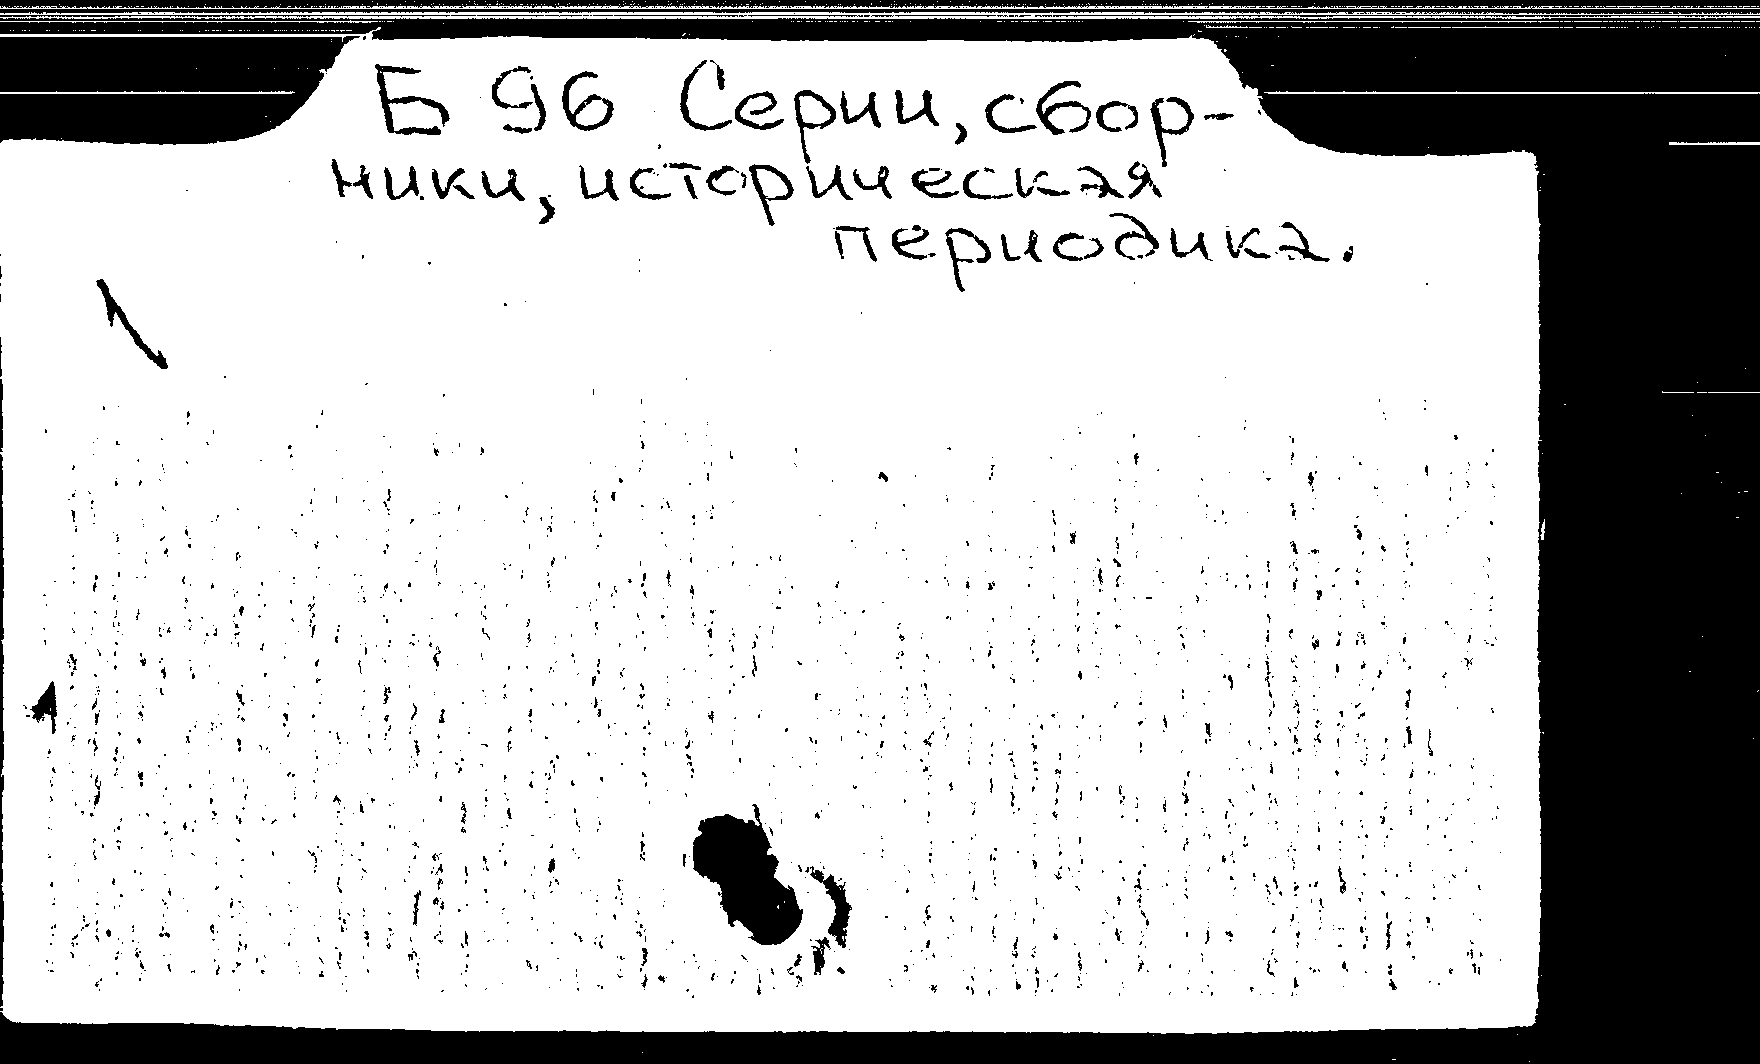 Б 96 Серии, сбор-
ники, историческая
периодика.